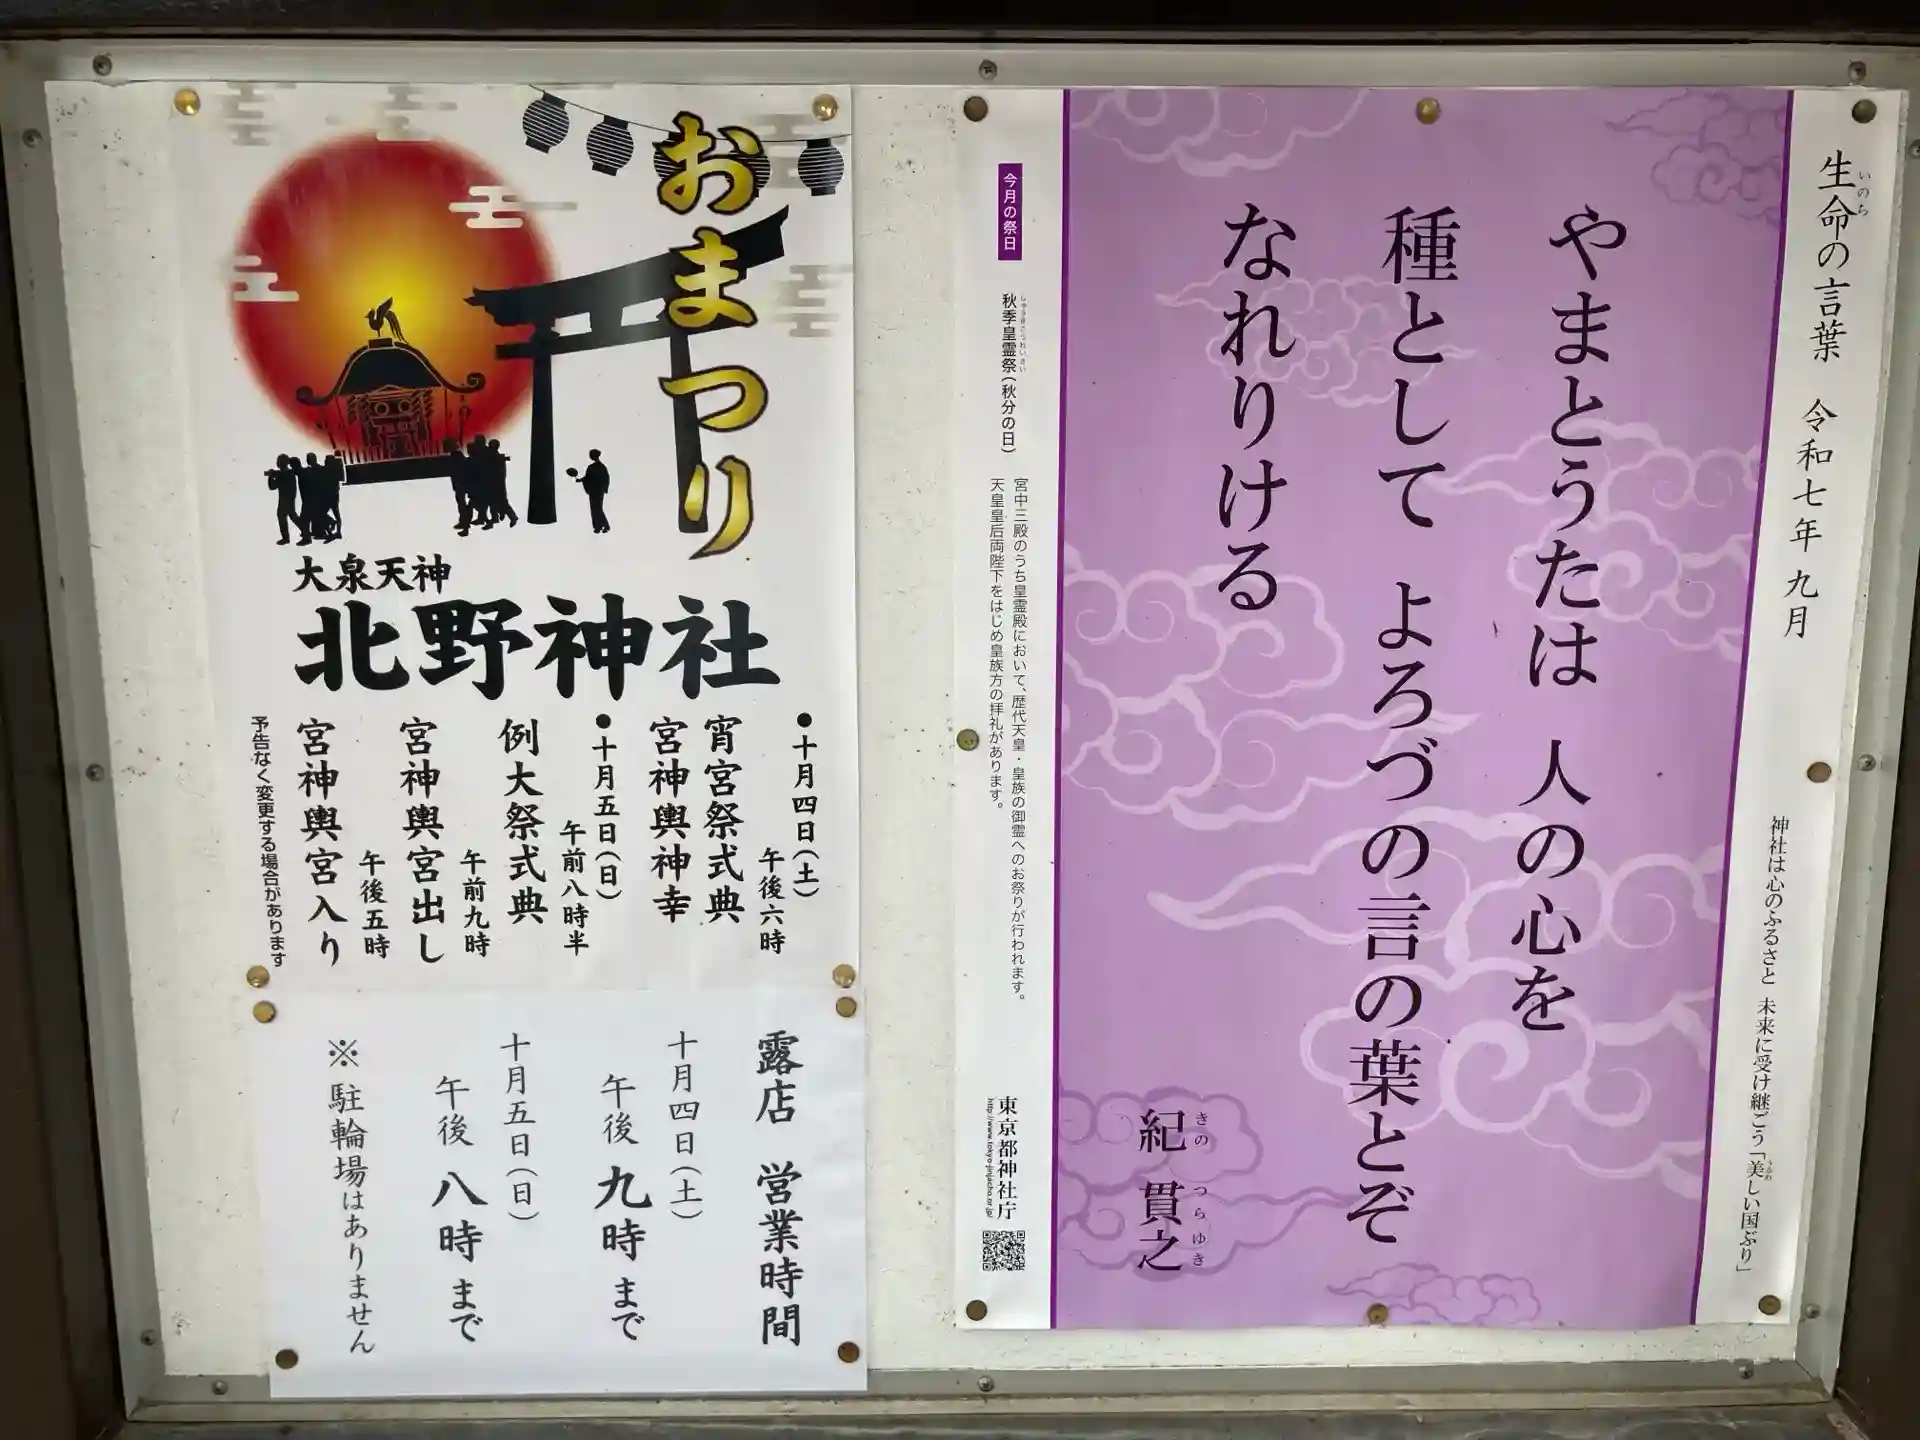 おまつり
大泉天神
北野神社
●十月四日(土)
午後六時
宵宮祭式典
宮神輿神幸
●十月五日(日)
午前八時半
例大祭式典
午前九時
宮神輿宮出し
午後五時
宮神輿宮入り
予告なく変更する場合があります
露店 営業時間
十月四日(土)
午後九時まで
十月五日(日)
午後八時まで
※駐輪場はありません
生命の言葉 令和七年九月
いのち
神社は心のふるさと 未来に受け継ごう「美しい国ぶり」
うるわ
やまとうたは 人の心を
種として よろづの言の葉とぞ
なれりける
紀 貫之
きの つらゆき
今月の祭日
秋季皇霊祭(秋分の日)
しゅうきこうれいさい
宮中三殿のうち皇霊殿において、歴代天皇・皇族の御霊へのお祭りが行われます。
天皇皇后両陛下をはじめ皇族方の拝礼があります。
東京都神社庁
http://www.tokyo-jinjacho.or.jp/